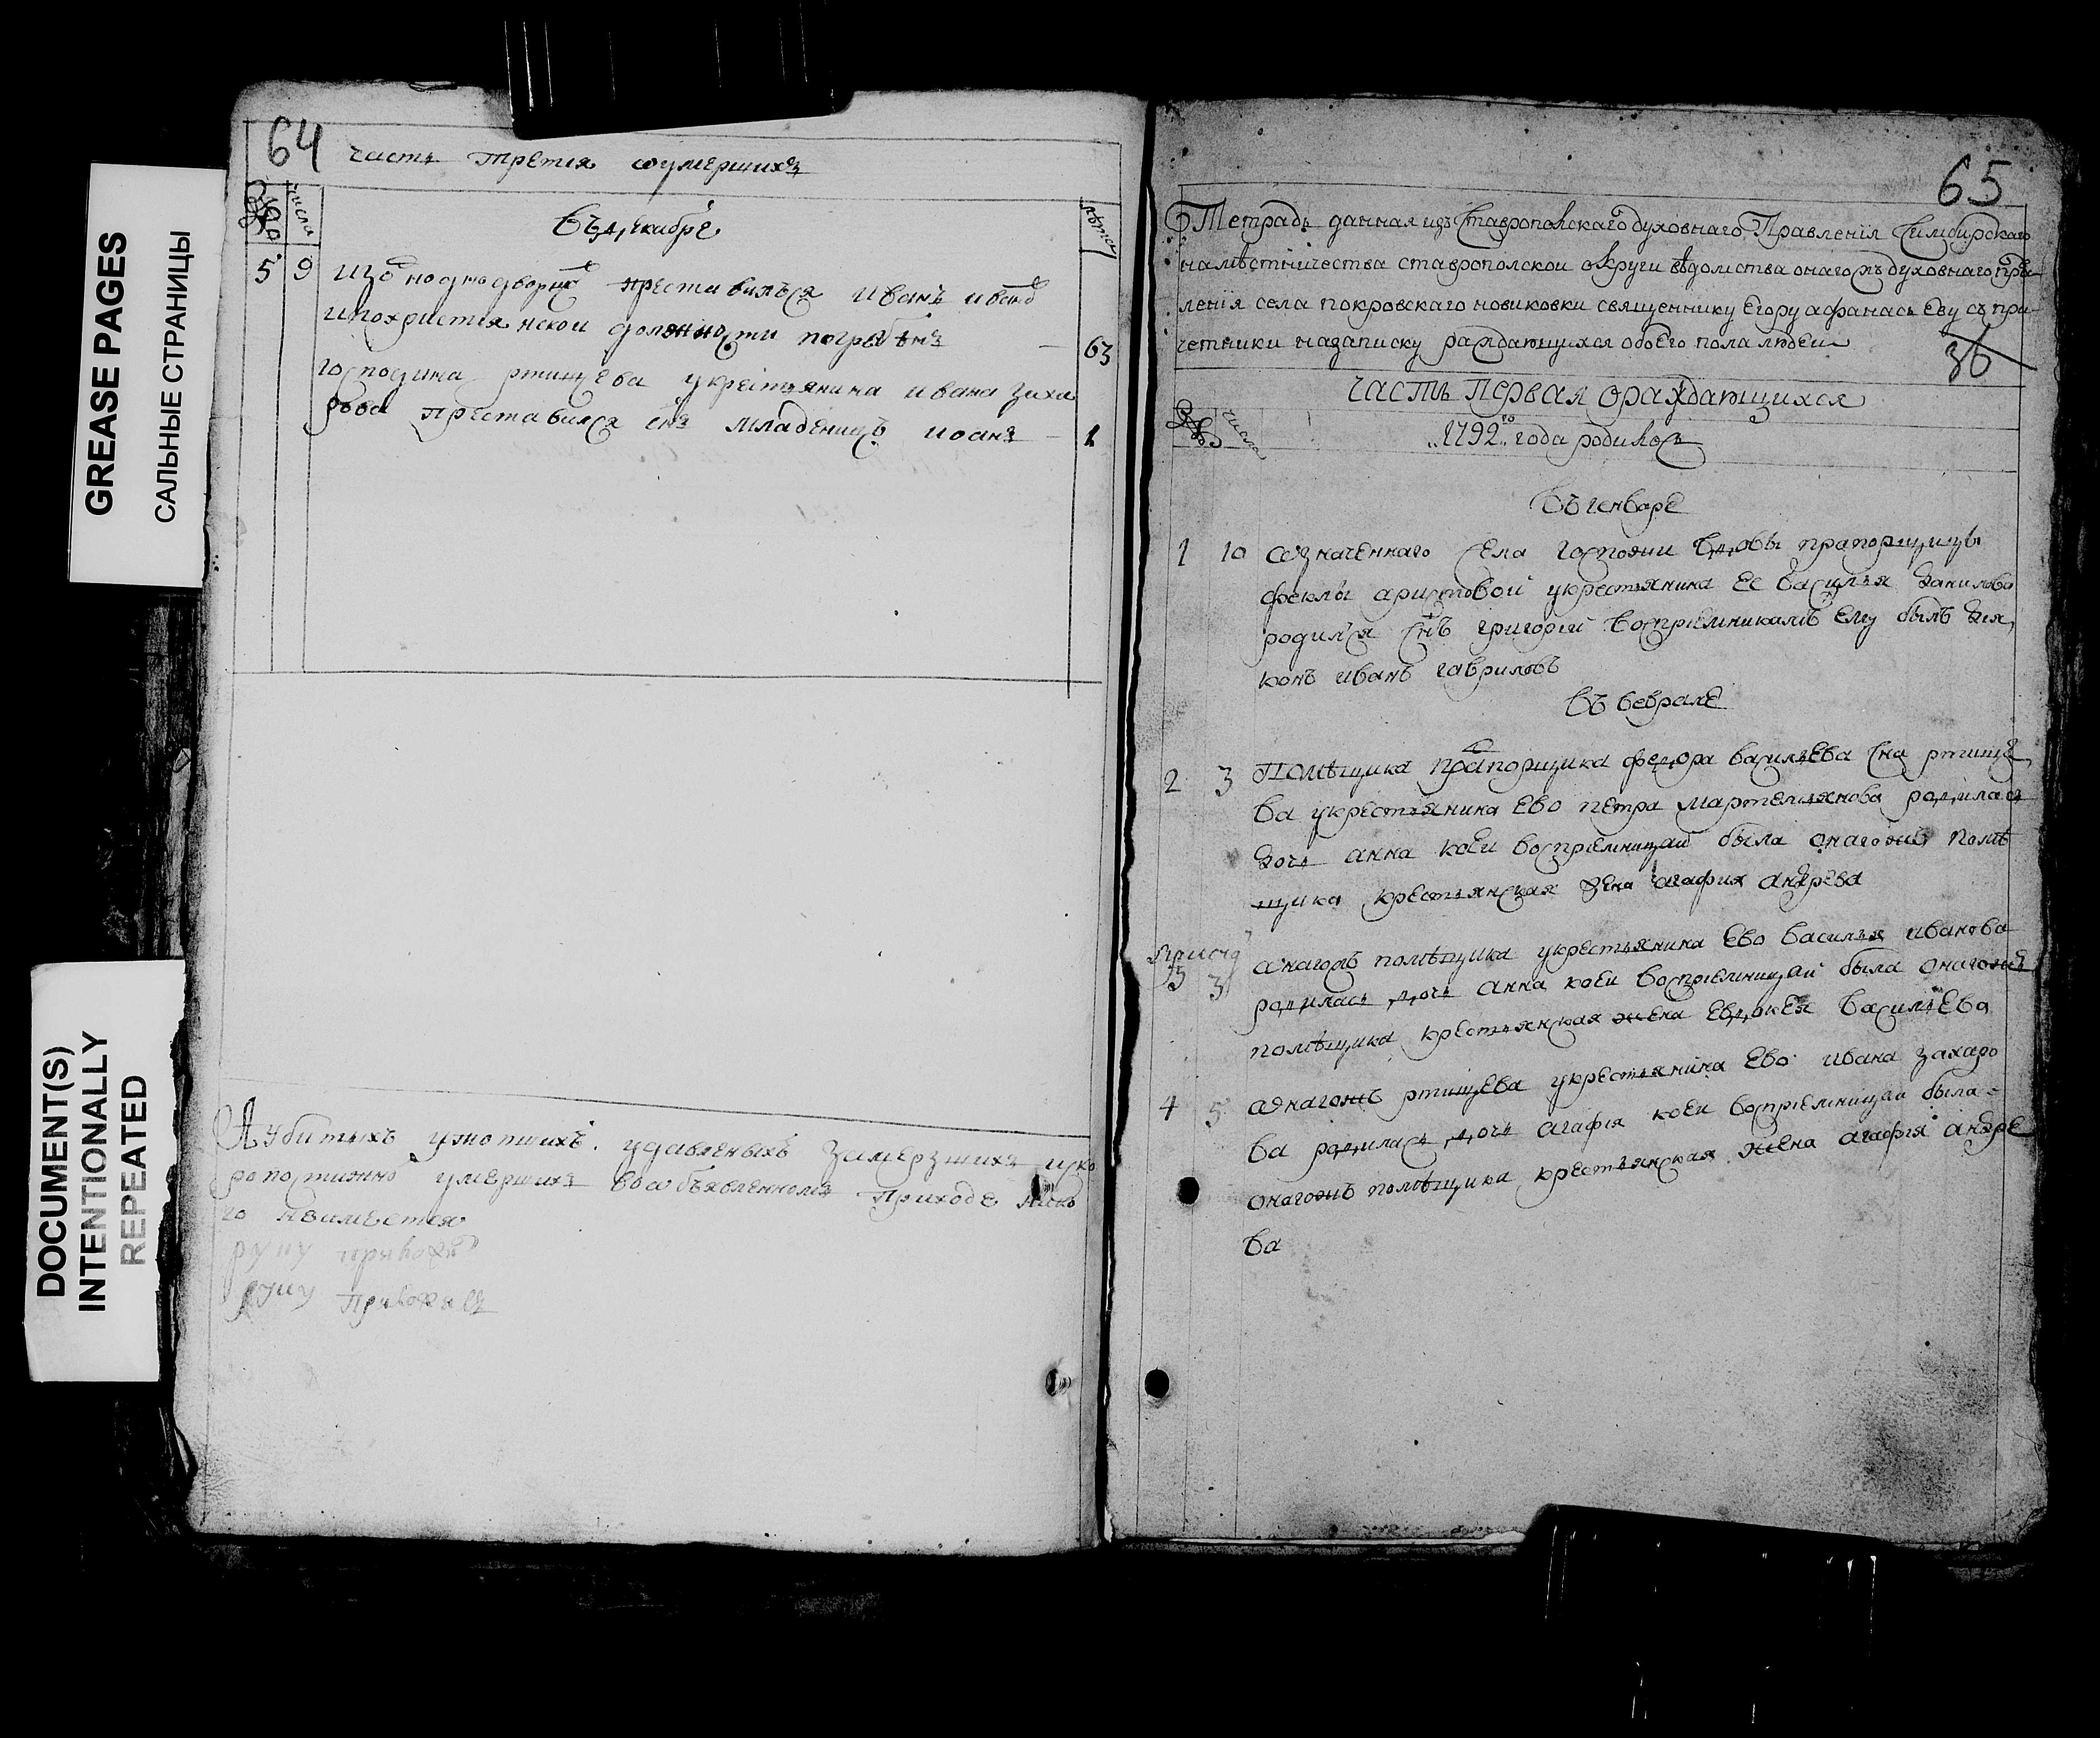 GREASE PAGES
САЛЬНЫЕ СТРАНИЦЫ
DOCUMENT(S)
INTENTIONALLY
REPEATED
64
часть третия оумершихъ
числа
лѣта
въ декабре
5 9 престaвилъся иванъ ивановъ
ипохристиянскои должности погребѣнъ — 63
господина ртищева укрестьянина ивана заха
рова преставился снъ младенецъ иоанъ — 1
Аубитыхъ утопшихъ удавленыхъ замерзшихъ иско
ропостижно умершихъ вообъявленномъ приходе нико
го неимеется
руку приложи
руку приложилъ
65
Тетрадь данная изъ Ставропольскаго духовнаго Правления Симбирскаго
намѣстничества ставрополской округи вѣдомства онагожъ духовнаго прав
ления села покровскаго новиковки священнику Егору афанасьеву съ при
четникиназаписку раждающихся обоего пола людеи
36
часть первая ораждающихся
числа
1792го года родилось
въ генваре
1 10 означеннаго села госпожи вдовы прапорщицы
феклы аристовой укрестьянина ее василья данилова
родился снъ григорей восприемникамъ ему былъ дья
конъ иванъ гавриловъ
въ феврале
2 3 Помѣщика прапорщика федора васильева сна ртище
ва укрестьянина ево петра мартемьянова родилась
дочь анна коеи восприемницаи была онагожъ помѣ
щика крестьянская жена агафия андрева
3 3 онагожъ помѣщика укрестьянина ево василья иванова
родилась дочь анна коеи восприемницаи была онагожъ
помѣщика крестьянская жена евдокея васильева
4 5 онагожъ ртищева укрестьянина ево ивана захаро
ва родилась дочь агафия коеи восприемницаи была
онагожъ помѣщика крестьянская жена агафия андре
ва